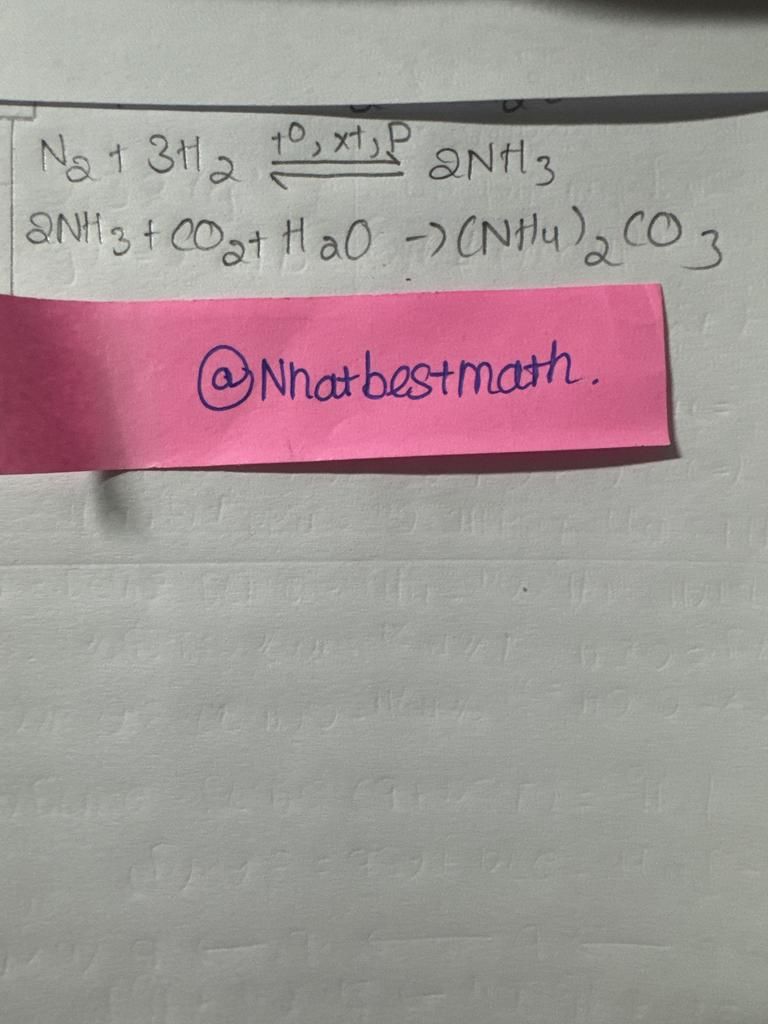 N2 + 3H2 ⇌ t0, xt, P 2NH3
2NH3 + CO2 + H2O -> (NH4)2CO3
@Nhatbestmath.